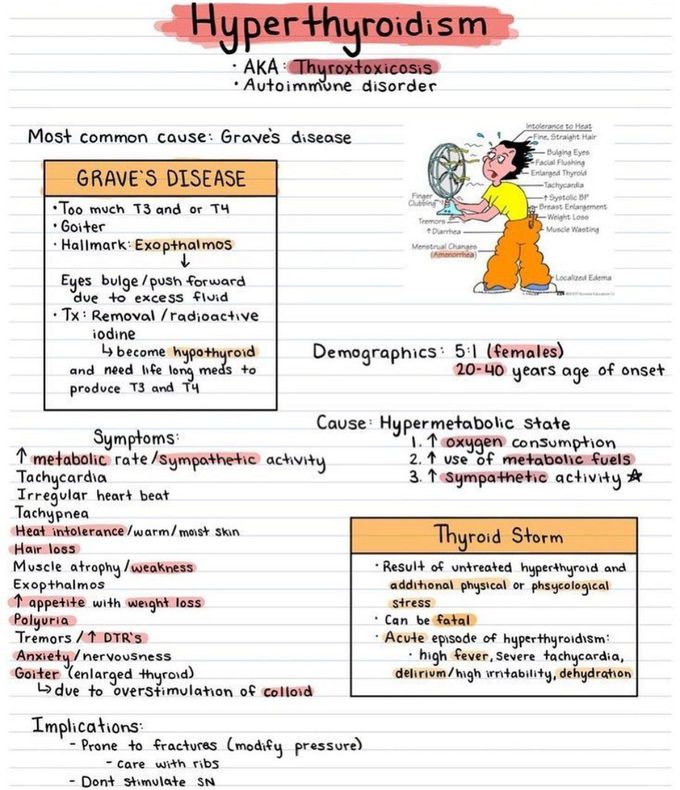 Hyperthyroidism
· AKA: Thyroxtoxicosis
· Autoimmune disorder
Most common cause: Grave's disease
GRAVE'S DISEASE
· Too much T3 and or T4
· Goiter
· Hallmark: Exopthalmos
↓
Eyes bulge/push forward
due to excess fluid
· Tx: Removal/radioactive
iodine
↳ become hypothyroid
and need life long meds to
produce T3 and T4
Intolerance to Heat
Fine, Straight Hair
Bulging Eyes
Facial Flushing
Enlarged Thyroid
Tachycardia
↑ Systolic BP
Breast Enlargement
Weight Loss
Muscle Wasting
Localized Edema
Finger
Clubbing
Tremors
↑ Diarrhea
Menstrual Changes
(Amenorrhea)
Demographics: 5:1 (females)
20-40 years age of onset
Cause: Hypermetabolic state
1. ↑ oxygen consumption
2. ↑ use of metabolic fuels
3. ↑ sympathetic activity ☆
Symptoms:
↑ metabolic rate/sympathetic activity
Tachycardia
Irregular heart beat
Tachypnea
Heat intolerance/warm/moist skin
Hair loss
Muscle atrophy/weakness
Exopthalmos
↑ appetite with weight loss
Polyuria
Tremors/↑ DTR's
Anxiety/nervousness
Goiter (enlarged thyroid)
↳ due to overstimulation of colloid
Thyroid Storm
· Result of untreated hyperthyroid and
additional physical or phsycological
stress
· Can be fatal
· Acute episode of hyperthyroidism:
· high fever, severe tachycardia,
delirium/high irritability, dehydration
Implications:
- Prone to fractures (modify pressure)
- care with ribs
- Dont stimulate SN